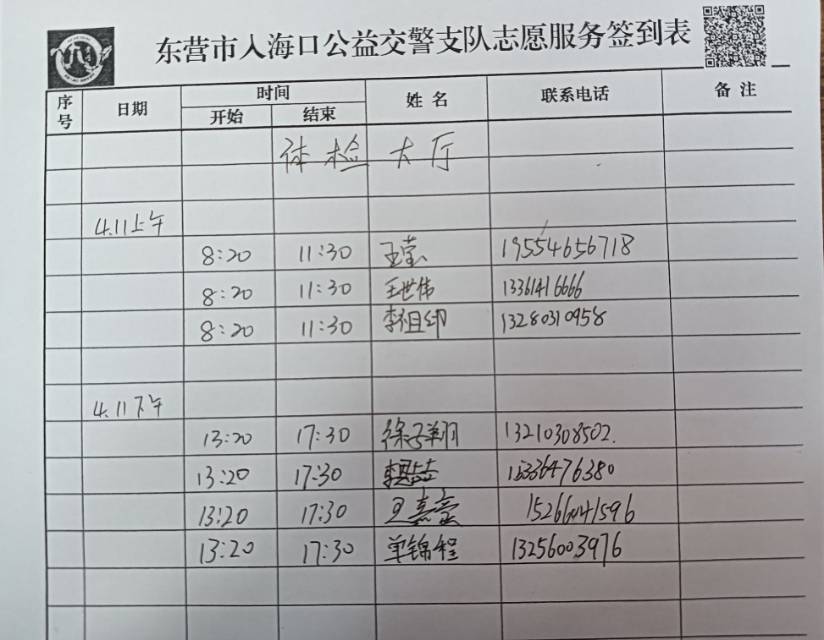 东营市入海口公益交警支队志愿服务签到表
序号 日期 时间 开始 结束 姓名 联系电话 备注
体检大厅
4.11上午
8:20 11:30 王莹 19554656718
8:20 11:30 王世伟 13361416666
8:20 11:30 李祖印 13280310958
4.11下午
13:20 17:30 徐子翔 13210308502.
13:20 17:30 15336476380
13:20 17:30 王嘉豪 15266041596
13:20 17:30 单锦程 13256003976